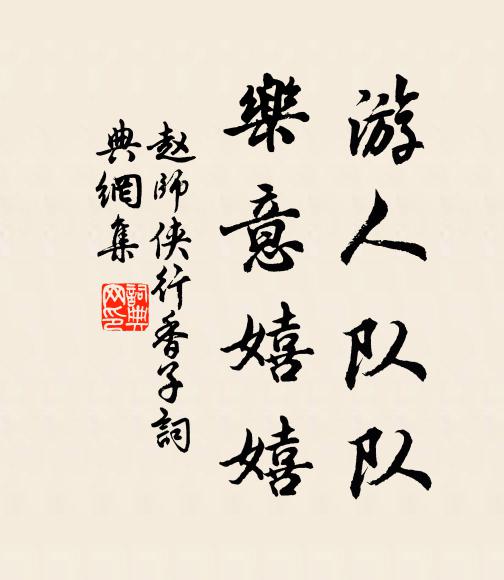 游人队队
樂意嬉嬉
赵師侠行香子詞
典網集
詞典
网印